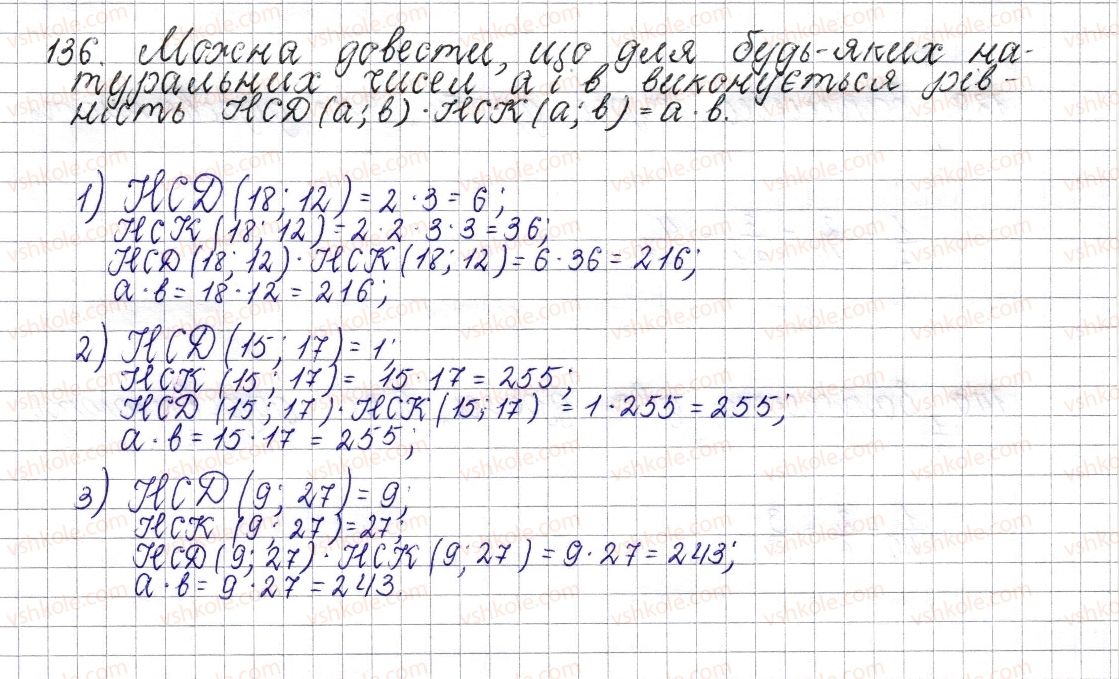 136. Можна довести, що для будь-яких на-
туральних чисел а і в виконується рів-
ність НСД(а;в)·НСК(а;в)=а·в.
1) НСД(18;12)=2·3=6;
НСК(18;12)=2·2·3·3=36;
НСД(18;12)·НСК(18;12)=6·36=216;
а·в=18·12=216;
2) НСД(15;17)=1;
НСК(15;17)=15·17=255;
НСД(15;17)·НСК(15;17)=1·255=255;
а·в=15·17=255;
3) НСД(9;27)=9;
НСК(9;27)=27;
НСД(9;27)·НСК(9;27)=9·27=243;
а·в=9·27=243.
vshkole.com